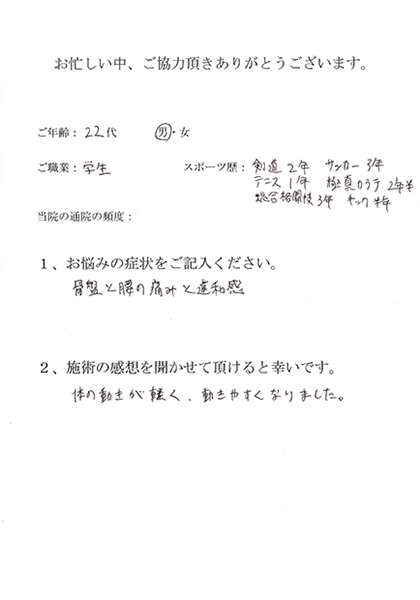 お忙しい中、ご協力頂きありがとうございます。
ご年齢：22代　男・女
ご職業：学生　スポーツ歴：剣道2年　サッカー3年
テニス1年　極真カラテ2年半
総合格闘技3年　キック半年
当院の通院の頻度：
１、お悩みの症状をご記入ください。
骨盤と腰の痛みと違和感
２、施術の感想を聞かせて頂けると幸いです。
体の動きが軽く、動きやすくなりました。